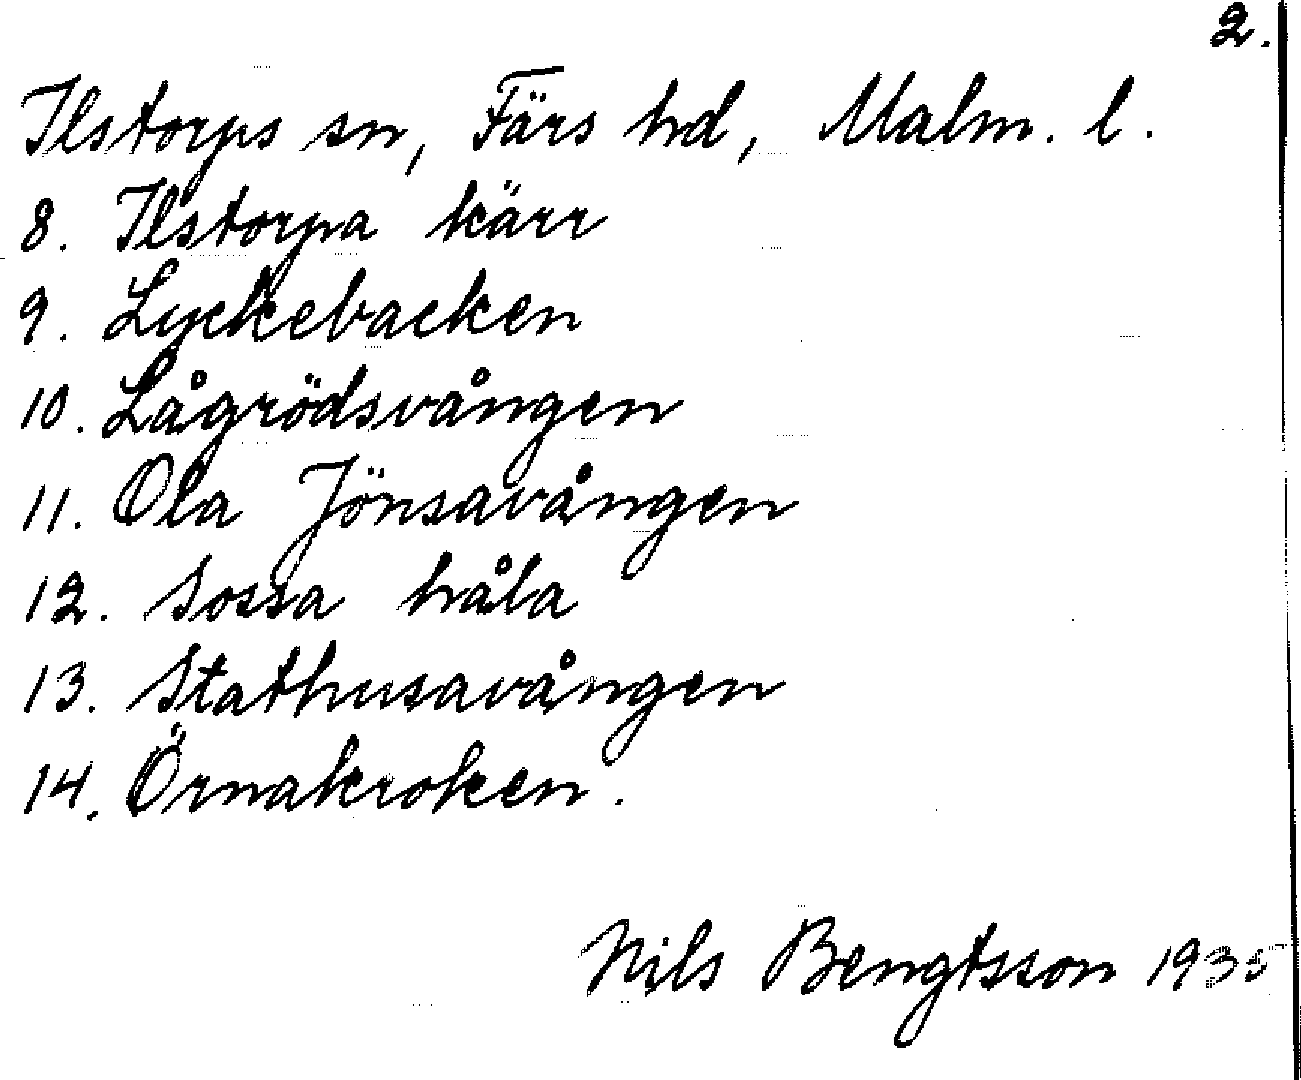 2.
Ilstorps sn, Färs hd, Malm. l.
8. Ilstorpa kärr
9. Lyckebacken
10. Lågrödsvången
11. Ola Jönsavången
12. Sossa håla
13. Stathusavången
14. Örnakroken.
Nils Bengtsson 1935